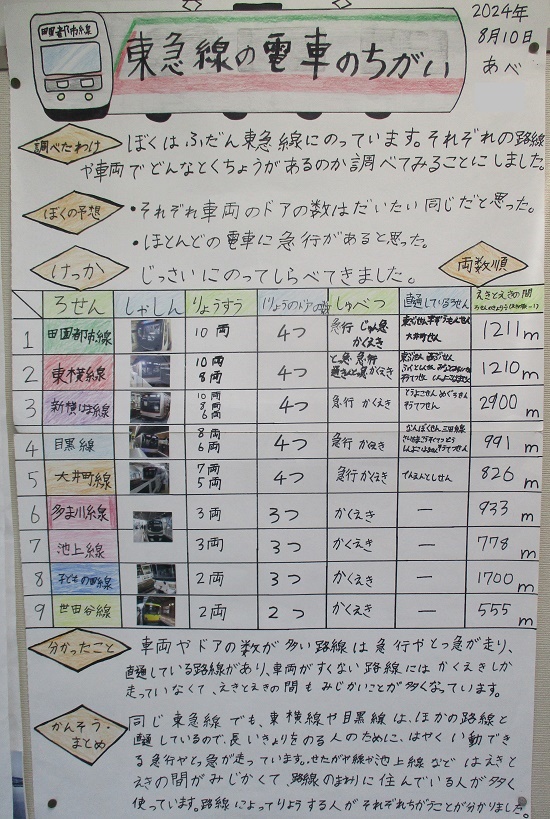 田園都市線
東急線の電車のちがい
2024年
8月10日
あべ
調べたわけ
ぼくはふだん東急線にのっています。それぞれの路線
や車両でどんなとくちょうがあるのか調べてみることにしました。
ぼくの予想
・それぞれ車両のドアの数はだいたい同じだと思った。
・ほとんどの電車に急行があると思った。
けっか
じっさいにのってしらべてきました。
両数順
ろせん しゃしん りょうすう 1りょうのドアの数 しゅべつ 直通しているろせん えきとえきの間
1 田園都市線 10両 4つ 急行 じゅん急 かくえき 大井町せん 1211m
2 東横線 10両 8両 4つ とっ急 急行 1210m
3 新横はま線 10両 8両 6両 4つ 急行 かくえき 2900m
4 目黒線 8両 6両 4つ 急行 かくえき 991m
5 大井町線 7両 5両 4つ 急行 かくえき でんえんとしせん 826m
6 多ま川線 3両 3つ かくえき ー 933m
7 池上線 3両 3つ かくえき ー 778m
8 子どもの国線 2両 3つ かくえき ー 1700m
9 世田谷線 2両 2つ かくえき ー 555m
分かったこと
車両やドアの数が多い路線は急行やとっ急が走り、
直通している路線があり、車両がすくない路線にはかくえきしか
走っていなくて、えきとえきの間もみじかいことが多くなっています。
かんそう・
まとめ
同じ東急線でも、東横線や目黒線は、ほかの路線と
直通しているので、長いきょりをのる人のために、はやくい動でき
る急行やとっ急が走っています。せたがや線や池上線などはえきと
えきの間がみじかくて、路線のまわりに住んでいる人が多く
使っています。路線によってりようする人がそれぞれちがうことが分かりました。